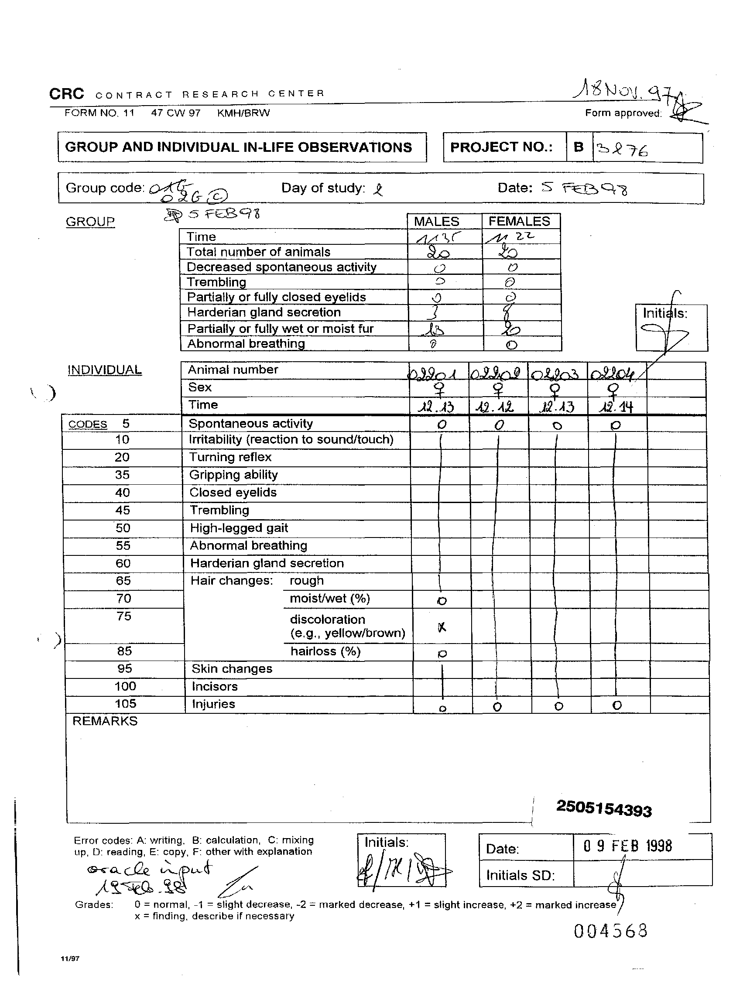 CRC CONTRACT RESEARCH CENTER
18 NOV. 97
FORM NO. 11 47 CW 97 KMH/BRW
Form approved:
GROUP AND INDIVIDUAL IN-LIFE OBSERVATIONS
PROJECT NO.: B 3276
Group code: 02G C Day of study: 2 Date: 5 FEB 98
5 FEB 98
GROUP MALES FEMALES
Time 11 22
Total number of animals 20 20
Decreased spontaneous activity 0 0
Trembling 0 0
Partially or fully closed eyelids 0 0
Harderian gland secretion 3 8
Initials:
Partially or fully wet or moist fur 13 20
Abnormal breathing 0 0
INDIVIDUAL Animal number 02201 02202 02203 02204
Sex ♀ ♀ ♀ ♀
Time 12.13 12.12 12.13 12.14
CODES 5 Spontaneous activity 0 0 0 0
10 Irritability (reaction to sound/touch)
20 Turning reflex
35 Gripping ability
40 Closed eyelids
45 Trembling
50 High-legged gait
55 Abnormal breathing
60 Harderian gland secretion
65 Hair changes: rough
70 moist/wet (%) 0
75 discoloration x
(e.g., yellow/brown)
85 hairloss (%) 0
95 Skin changes
100 Incisors
105 Injuries 0 0 0 0
REMARKS
2505154393
Error codes: A: writing, B: calculation, C: mixing
up, D: reading, E: copy, F: other with explanation
Initials:
Date: 09 FEB 1998
oracle input
19 Feb. 98
Initials SD:
Grades: 0 = normal, -1 = slight decrease, -2 = marked decrease, +1 = slight increase, +2 = marked increase
x = finding, describe if necessary
004568
11/97